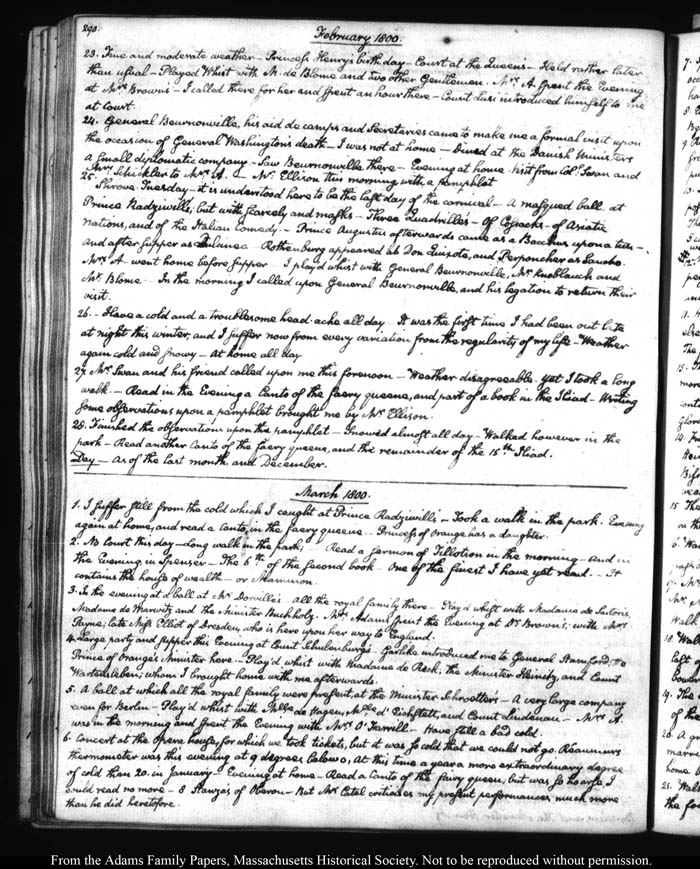 290.
February 1800.
23. Fine and moderate weather – Princess Henry's birth day – Court at the Queen's – Held rather later
than usual – Played Whist with M. de Blome and two other Gentlemen. Mrs. A. spent the Evening
at Mrs. Brown's – I called there for her and spent an hour there – Court introduced himself to me
at Court
24. General Beurnonville, his aid de camps and Secretaries came to make me a formal visit upon
the occasion of General Washington's death – I was not at home – Dined at the Danish Minister's
a small diplomatic company – Saw Beurnonville there – Evening at home. Visit from Coll. Swan and
Mr. Schickler to Mrs. A. – Mr. Ellison this morning with a pamphlet
25. Shrove Tuesday – it is understood here to be the last day of the carnival – A masqued ball at
Prince Radziwill's, but with scarcely any masks – Three Quadrilles – Of Cossacks – of Asiatic
nations, and of the Italian Comedy. – Prince Augustus afterwards came as a Bacchus upon a tun –
And after supper as – Rothenburg appeared as Don Quixote, and Perponcher as Sancho.
Mrs. A. went home before supper. I play'd whist with General Beurnonville, Mr. Knoblauch and
Mr. Blome. – In the morning I called upon General Beurnonville, and his legation to return their
visit.
26. – Have a cold and a troublesome head-ache all day. It was the first time I had been out late
at night this winter, and I suffer now from every variation from the regularity of my life – Weather
again cold and snowy – At home all day
27. Mr. Swan and his friend called upon me this forenoon – Weather disagreeable. Yet I took a long
walk. – Read in the Evening a Canto of the faery queene, and part of a book in the Iliad – Writing
some observations upon a pamphlet brought me by Mr. Ellison.
28. Finished the observations upon the pamphlet – Snowed almost all day – Walked however in the
park – Read another Canto of the faery queene, and the remainder of the 15th. Iliad.
Day – As of the last month and December.
March 1800.
1. I suffer still from the cold which I caught at Prince Radziwill's – Took a walk in the park. Evening
again at home, and read a Canto, in the faery queene – Princess of Orange has a daughter.
2. No Court this day – Long walk in the park; – Read a sermon of Tillotson in the morning – And in
the Evening in Spenser – The 6th of the second book – One of the finest I have yet read. – It
contains the house of wealth – or Mammon.
3. In the evening at a ball at Mr. Dorville's – All the royal family there – Play'd whist with Madame de Sartoris
Madame de and the Minister Buchholz. Mrs. Adams spent the Evening at Dr. Brown's; with Mrs.
Payne; late Miss Elliot of Dresden, who is here upon her way to England.
4. Large party and supper this Evening at Count Schulenburg's. Garlike introduced me to General Stamford, the
Prince of Orange's Minister here. – Play'd whist with Madame de Reck, the Minister Heinitz, and Count
Wartensleben; whom I brought home with me afterwards.
5. A ball at which all the royal family were present, at the Minister Schroetter's – A very large company
even for Berlin – Play'd whist with Mlle. de Hagen, Mlle. d'Eichstett, and Count Lindenau. – Mrs. A.
was in the morning and spent the Evening with Mrs. O'Farrill. – Have still a bad cold.
6. Concert at the Opera house, for which we took tickets, but it was so cold that we could not go. Reaumur's
thermometer was this evening at 9 degrees below 0, At this time a year a more extraordinary degree
of cold than 20. in January – Evening at home – Read a Canto of the faery queen, but was so hoarse I
could read no more – 8 Stanza's of Oberon – But Mr. Catel criticises my present performances much more
than he did heretofore.
From the Adams Family Papers, Massachusetts Historical Society. Not to be reproduced without permission.